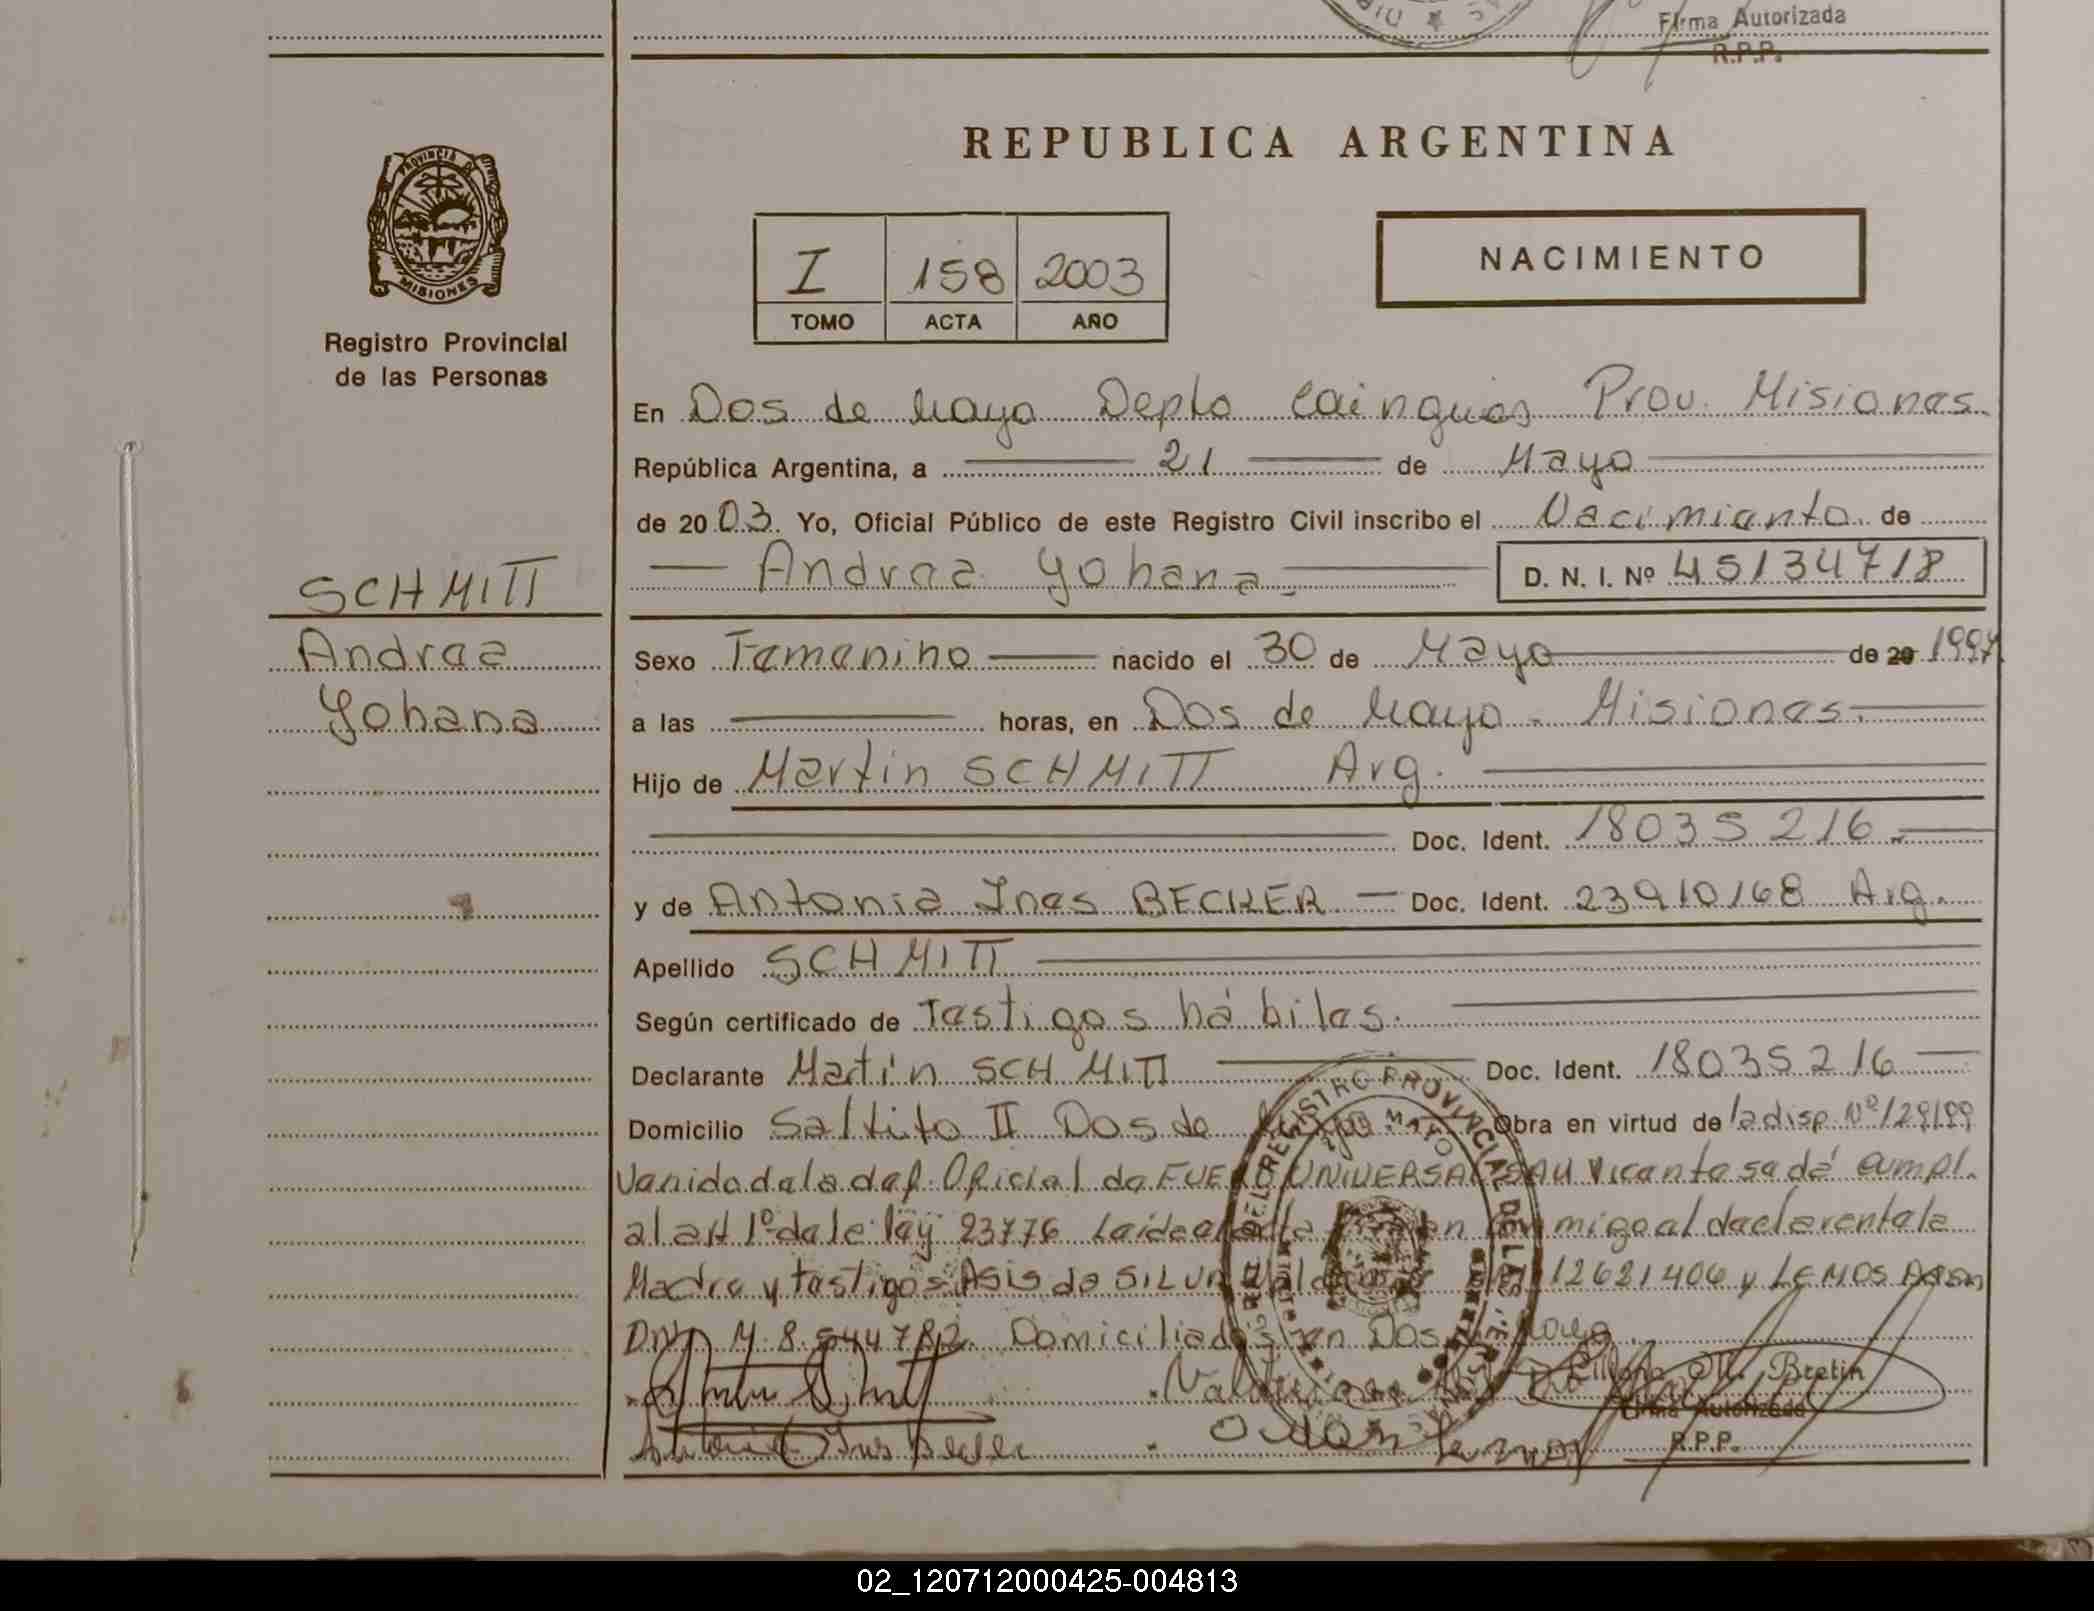 Firma Autorizada
R.P.P.
REPUBLICA ARGENTINA
PROVINCIA DE MISIONES
Registro Provincial
de las Personas
NACIMIENTO
I 158 2003
TOMO ACTA AÑO
En Dos de Mayo Depto Cainguas Prov. Misiones.
República Argentina, a 21 de Mayo
de 2003. Yo, Oficial Público de este Registro Civil inscribo el Nacimiento de
Andrea Yohana. D. N. I. Nº 45134718
SCHMITT
Andrea
Yohana
Sexo Femenino nacido el 30 de Mayo de 20 1997
a las horas, en Dos de Mayo. Misiones.
Hijo de Martin SCHMITT Arg.
Doc. Ident. 18035216.
y de Antonia Ines BECKER Doc. Ident. 23910168 Arg.
Apellido SCHMITT
Según certificado de Testigos hábiles.
Declarante Martin SCHMITT Doc. Ident. 18035216
Domicilio Saltito II Dos de Mayo Obra en virtud de la disp. Nº 129/99
Venida de la def. Oficial de FUERO UNIVERSAL SAN Vicente se dá cumpl.
al art 1º de le ley 23776 Leída el acta firman conmigo al declarente la
Madre y testigos Asis de SILVA 12621406 y LEMOS
DNI M. 8.544782. Domiciliados en Dos de Mayo
REGISTRO PROVINCIAL DE LAS PERSONAS
DOS DE MAYO
Antonia Ines Becker
Liliana M. Bretin
Firma Autorizada
R.P.P.
02_120712000425-004813